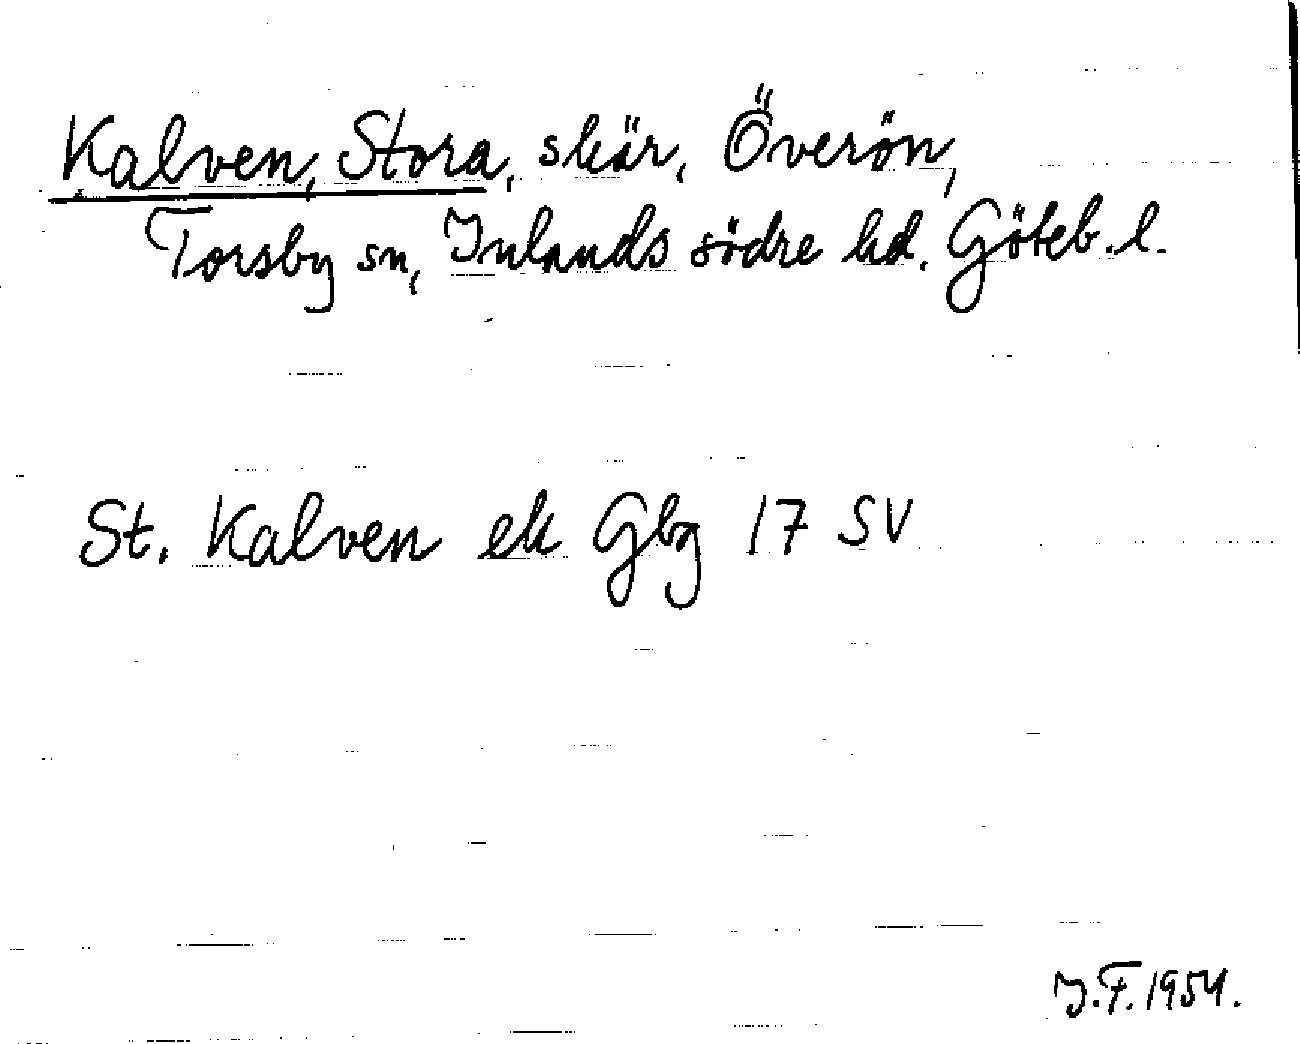 Kalven, Stora, skär, Överön,
Torsby sn, Inlands södre hd. Göteb. l.
St. Kalven ek Gbg 17 SV
I.F. 1954.